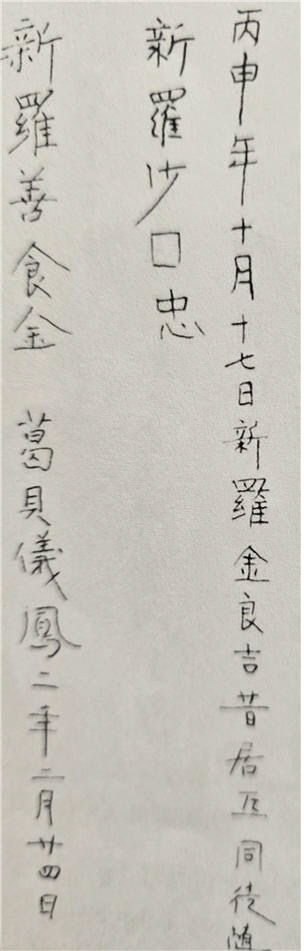 丙申年十月十七日新羅金良吉昔居互同徒随
新羅沙□忠
新羅善食金 葛貝儀鳳二年二月廿四日